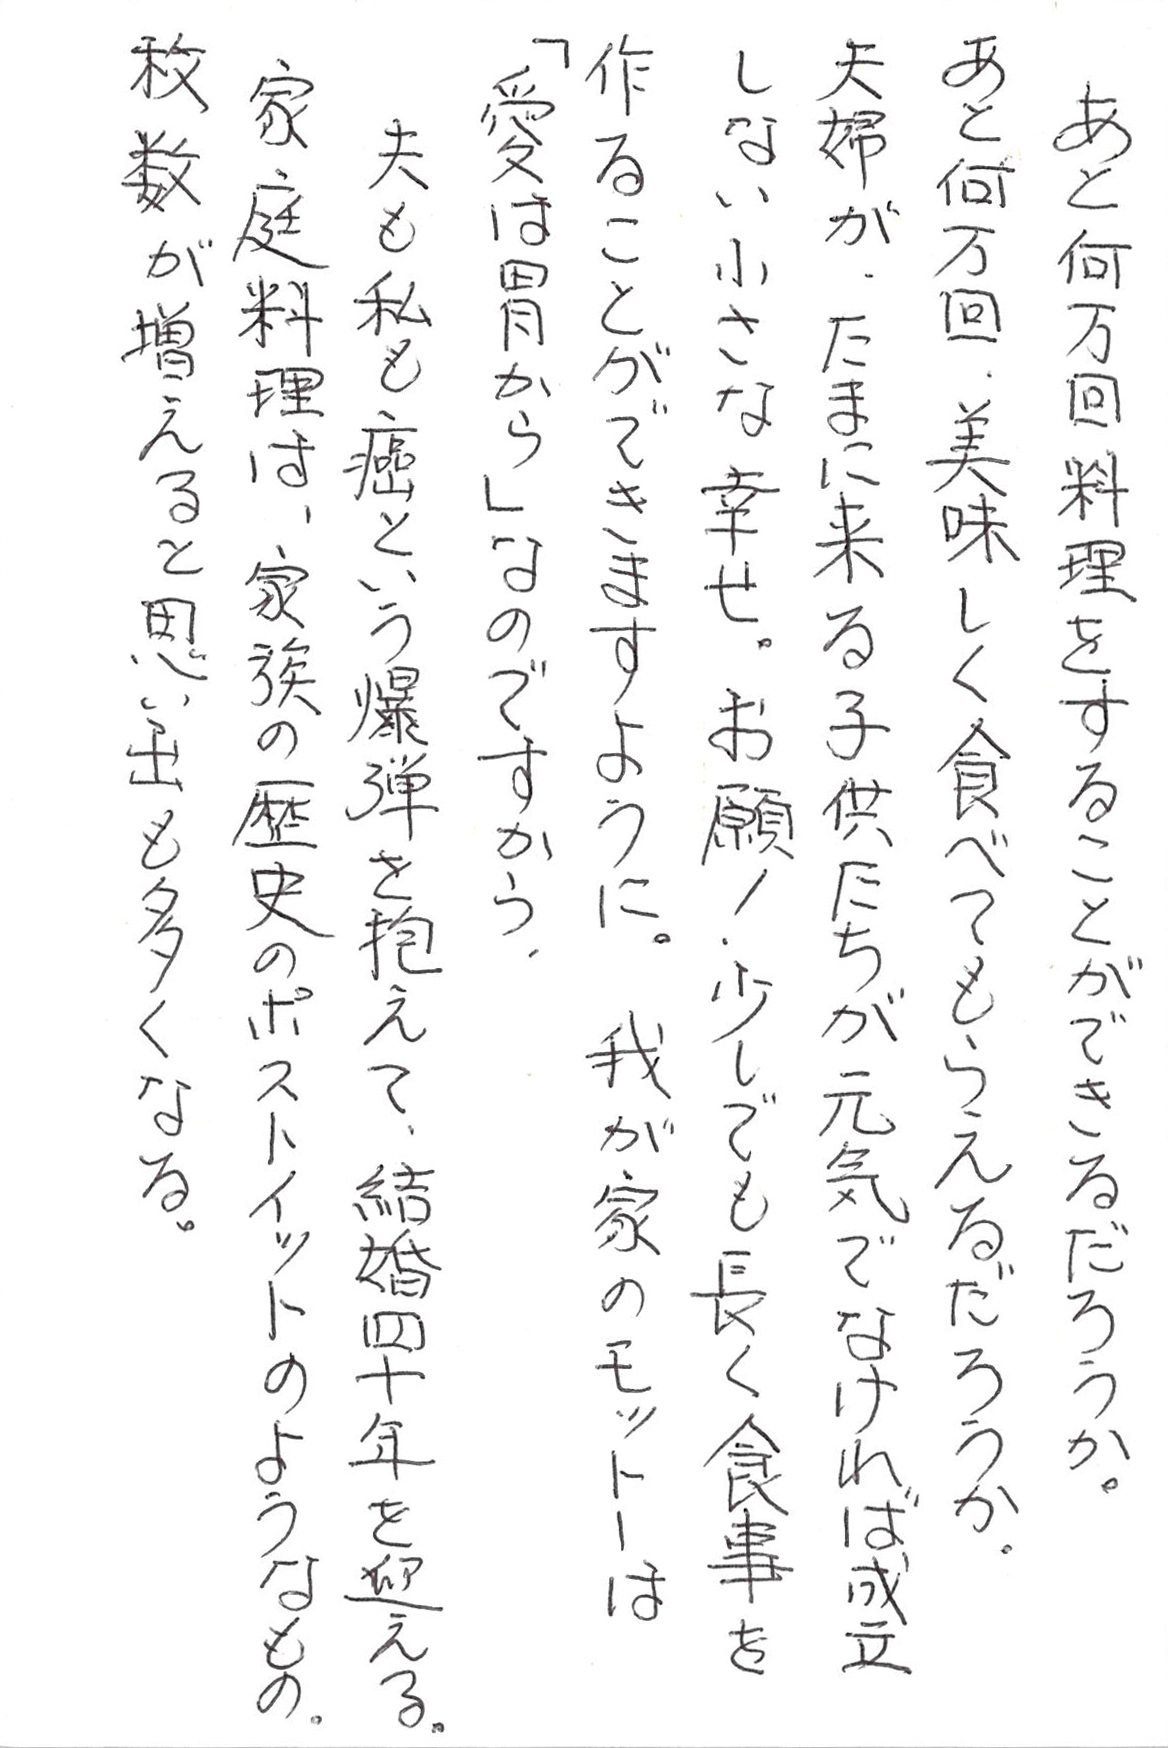 あと何万回料理をすることができるだろうか。
あと何万回、美味しく食べてもらえるだろうか。
夫婦が、たまに来る子供たちが元気でなければ成立
しない小さな幸せ。お願い、少しでも長く食事を
作ることができますように。我が家のモットーは
「愛は胃から」なのですから、
夫も私も癌という爆弾を抱えて、結婚四十年を迎える。
家庭料理は、家族の歴史のポストイットのようなもの。
枚数が増えると思い出も多くなる。